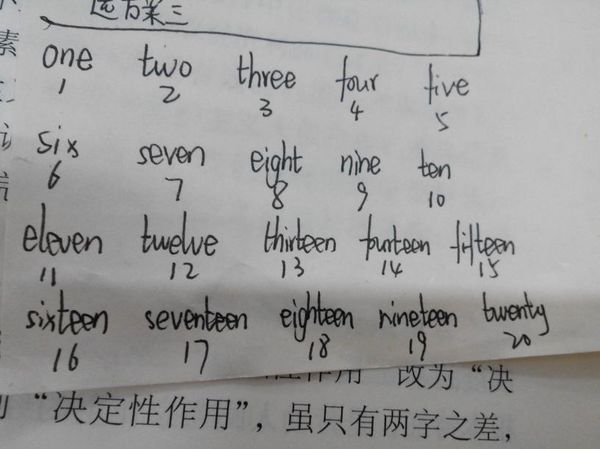 选方案三
one two three four five
1 2 3 4 5
six seven eight nine ten
6 7 8 9 10
eleven twelve thirteen fourteen fifteen
11 12 13 14 15
sixteen seventeen eighteen nineteen twenty
16 17 18 19 20
改为“决
“决定性作用”，虽只有两字之差，
素